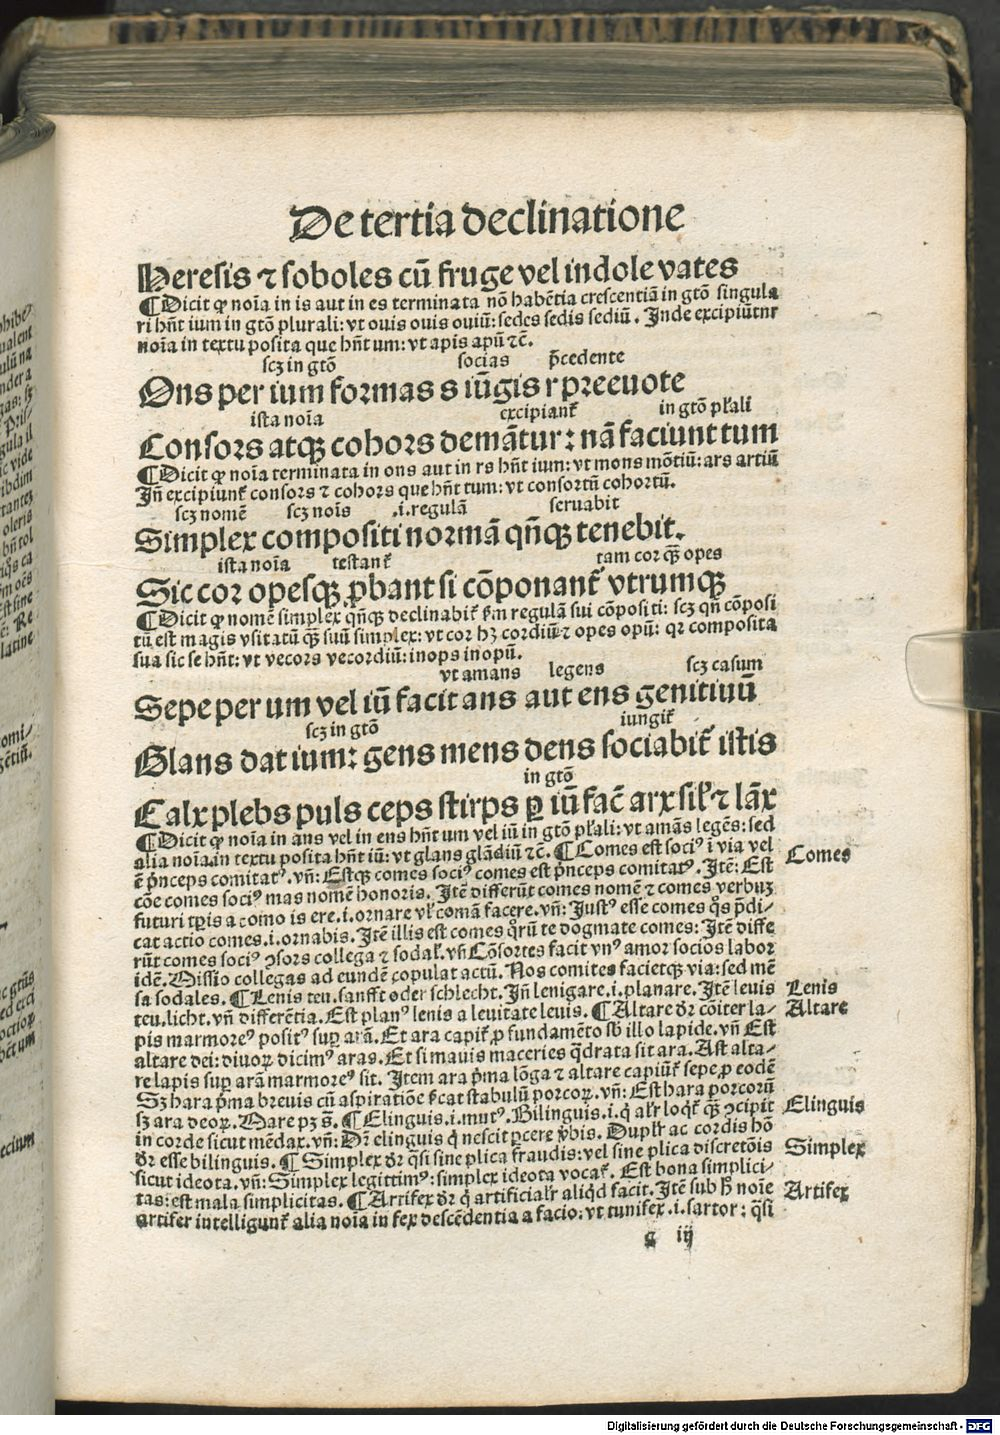 De tertia declinatione
Heresis ⁊ soboles cũ fruge vel indole vates
¶Dicit ꝙ noĩa in is aut in es terminata nõ habẽtia crescentiã in gtõ singula
ri hñt ium in gtõ plurali: vt ouis ouis ouiũ: sedes sedis sediũ. Inde excipiũtur
noĩa in textu posita que hñt um: vt apis apũ ⁊c̃.
scʒ in gtõ socias p̃cedente
Ons per ium formas s iũgis r preeuote
ista noĩa excipiant᷑ in gtõ pl᷑ali
Consors atqꝫ cohors demãtur: nã faciunt tum
¶Dicit ꝙ noĩa terminata in ons aut in rs hñt ium: vt mons mõtiũ: ars artiũ
Iñ excipiunt᷑ consors ⁊ cohors que hñt tum: vt consortũ cohortũ.
scʒ nomẽ scʒ noĩs .i. regulã seruabit
Simplex compositi normã qñqꝫ tenebit.
ista noĩa testant᷑ tam cor qꝫ̃ opes
Sic cor opesqꝫ ꝓbant si cõponant᷑ vtrumqꝫ
¶Dicit ꝙ nomẽ simplex qñqꝫ declinabit᷑ ẜm regulã sui cõpositi: scʒ qñ cõposi
tũ est magis vsitatũ qꝫ̃ suũ simplex: vt cor hʒ cordiũ ⁊ opes opũ: qꝛ composita
sua sic se hñt: vt vecors vecordiũ: inops inopũ.
vt amans legens scʒ casum
Sepe per um vel iũ facit ans aut ens genitiuũ
scʒ in gtõ iungit᷑
Glans dat ium: gens mens dens sociabit᷑ istis
in gtõ
Calx plebs puls ceps stirps ꝑ iũ fac̃ arx sil᷑ ⁊ lãx
¶Dicit ꝙ noĩa in ans vel in ens hñt um vel iũ in gtõ pl᷑ali: vt amãs legẽs: sed
alia noĩa in textu posita hñt iũ: vt glans glãdiũ ⁊c̃. ¶Comes est soci⁹ ĩ via vel
ẽ p̃nceps comitat⁹. vñ: Estqꝫ comes soci⁹ comes est p̃nceps comitat⁹. Itẽ: Est
cõe comes soci⁹ mas nomẽ honoris. Itẽ differũt comes nomẽ ⁊ comes verbũ
futuri tꝑis a como is ere .i. ornare vl᷑ comã facere. vñ: Iust⁹ esse comes q̊s p̃di⸗
cat actio comes .i. ornabis. Itẽ illis est comes qꝛũ te dogmate comes: Itẽ diffe
rũt comes soci⁹ ꝯsors collega ⁊ sodal᷑. vñ Cõsortes facit vn⁹ amor socios labor
idẽ. Missio collegas ad eundẽ copulat actũ. Nos comites facietqꝫ via: sed mẽ
sa sodales. ¶Lenis teu. sanfft oder schlecht. Iñ lenigare .i. planare. Itẽ leuis
teu. licht. vñ differẽtia. Est plan⁹ lenis a leuitate leuis. ¶Altare dr̃ cõiter la⸗
pis marmore⁹ posit⁹ suꝑ arã. Et ara capit᷑ ꝓ fundamẽto sb̃ illo lapide. vñ Est
altare dei: diuoꝝ dicim⁹ aras. Et si mauis maceries q̃drata sit ara. Ast alta⸗
re lapis suꝑ arã marmore⁹ sit. Item ara p̃ma lõga ⁊ altare capiũt᷑ sepe ꝓ eodẽ
Sʒ hara p̃ma breuis cũ aspiratiõe ẜcat stabulũ porcoꝝ. vñ: Est hara porcorũ
sʒ ara deoꝝ. Mare pʒ s̃. ¶Elinguis .i. mut⁹. Bilinguis .i. q̇ al᷑r loqt᷑ qꝫ̃ ꝯcipit
in corde sicut mẽdax. vñ: Dr̃ elinguis q̇ nescit ꝓcere v̾bis. Dupl᷑r ac cordis hõ
dr̃ esse bilinguis. ¶Simplex dr̃ q̃si sine plica fraudis: vel sine plica discretõis
sicut ideota. vñ: Simplex legittim⁹: simplex ideota vocat᷑. Est bona simplici⸗
tas: est mala simplicitas. ¶Artifex dr̃ q̇ artificial᷑r aliq̇d facit. Itẽ sub h̾ noĩe
artifex intelligunt᷑ alia noĩa in fex descẽdentia a facio: vt tunifex .i. sartor: q̃si
Comes
Lenis
Altare
Elinguis
Simplex
Artifex
g iij
Digitalisierung gefördert durch die Deutsche Forschungsgemeinschaft - DFG